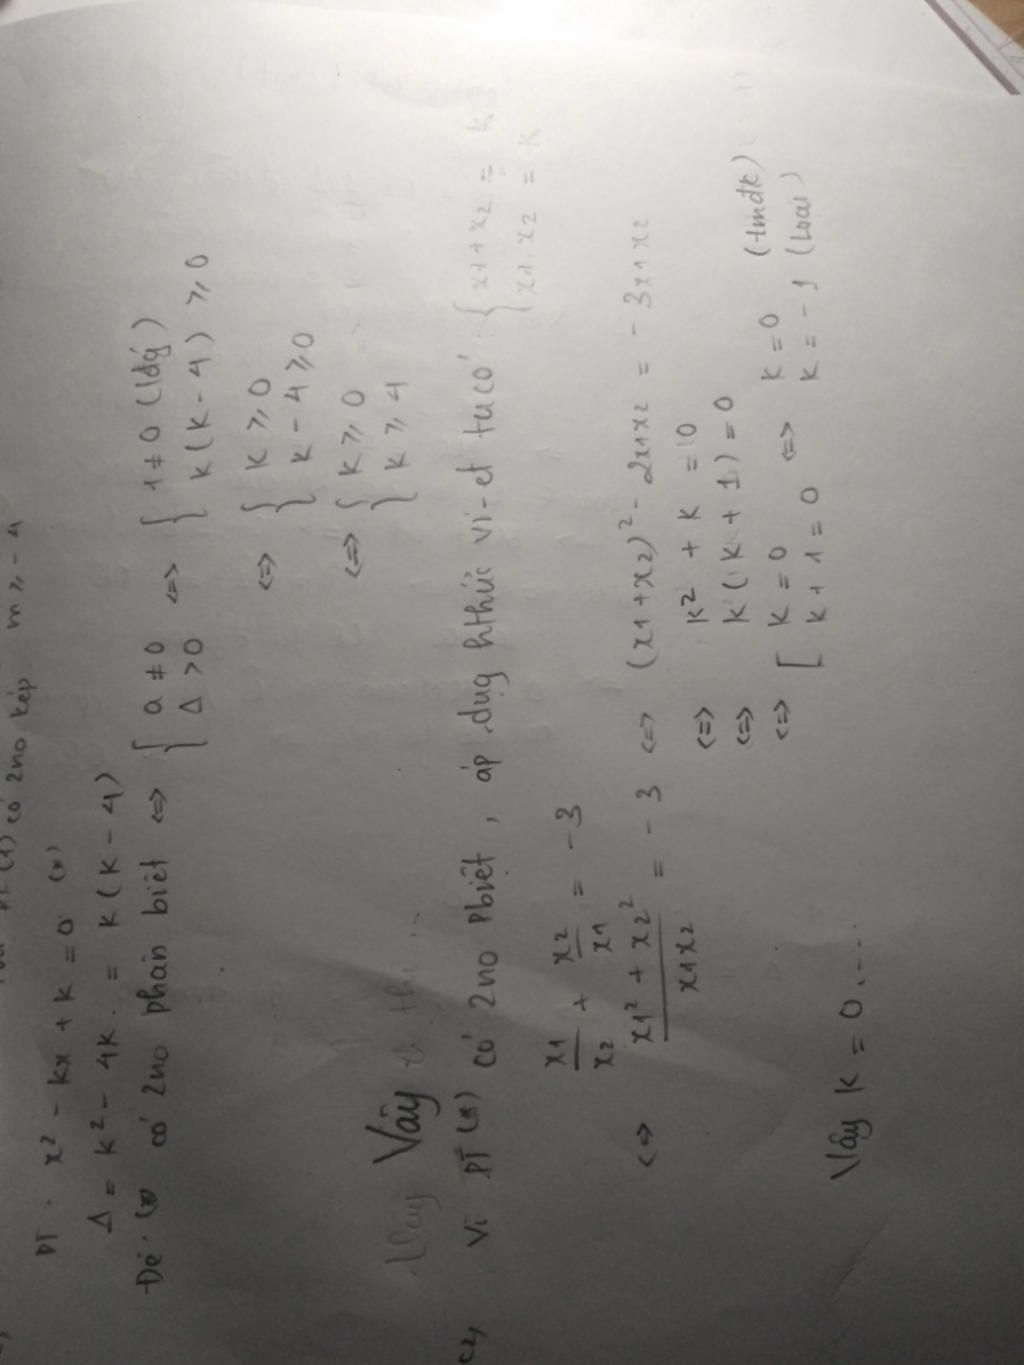 PT (1) có 2no kép m ≥ - 4
PT . x² - kx + k = 0 (*)
Δ = k² - 4k . = k (k - 4)
Để (*) có 2no phân biệt <=> { a ≠ 0 <=> { 1 ≠ 0 (lđý)
Δ > 0 k (k - 4) ≥ 0
<=> { k ≥ 0
k - 4 ≥ 0
<=> { k ≥ 0
k ≥ 4
Vậy
c2, Vì PT (*) có 2no pbiệt , áp dụg hthức vi-et ta có : { x1 + x2 = k
x1 . x2 = k
x1/x2 + x2/x1 = - 3
<=> (x1² + x2²)/(x1x2) = - 3 <=> (x1 + x2)² - 2x1x2 = - 3x1x2
<=> k² + k = 0
<=> k (k + 1) = 0
<=> [ k = 0 <=> k = 0 (tmđk)
k + 1 = 0 k = - 1 (loại)
Vậy k = 0 ....